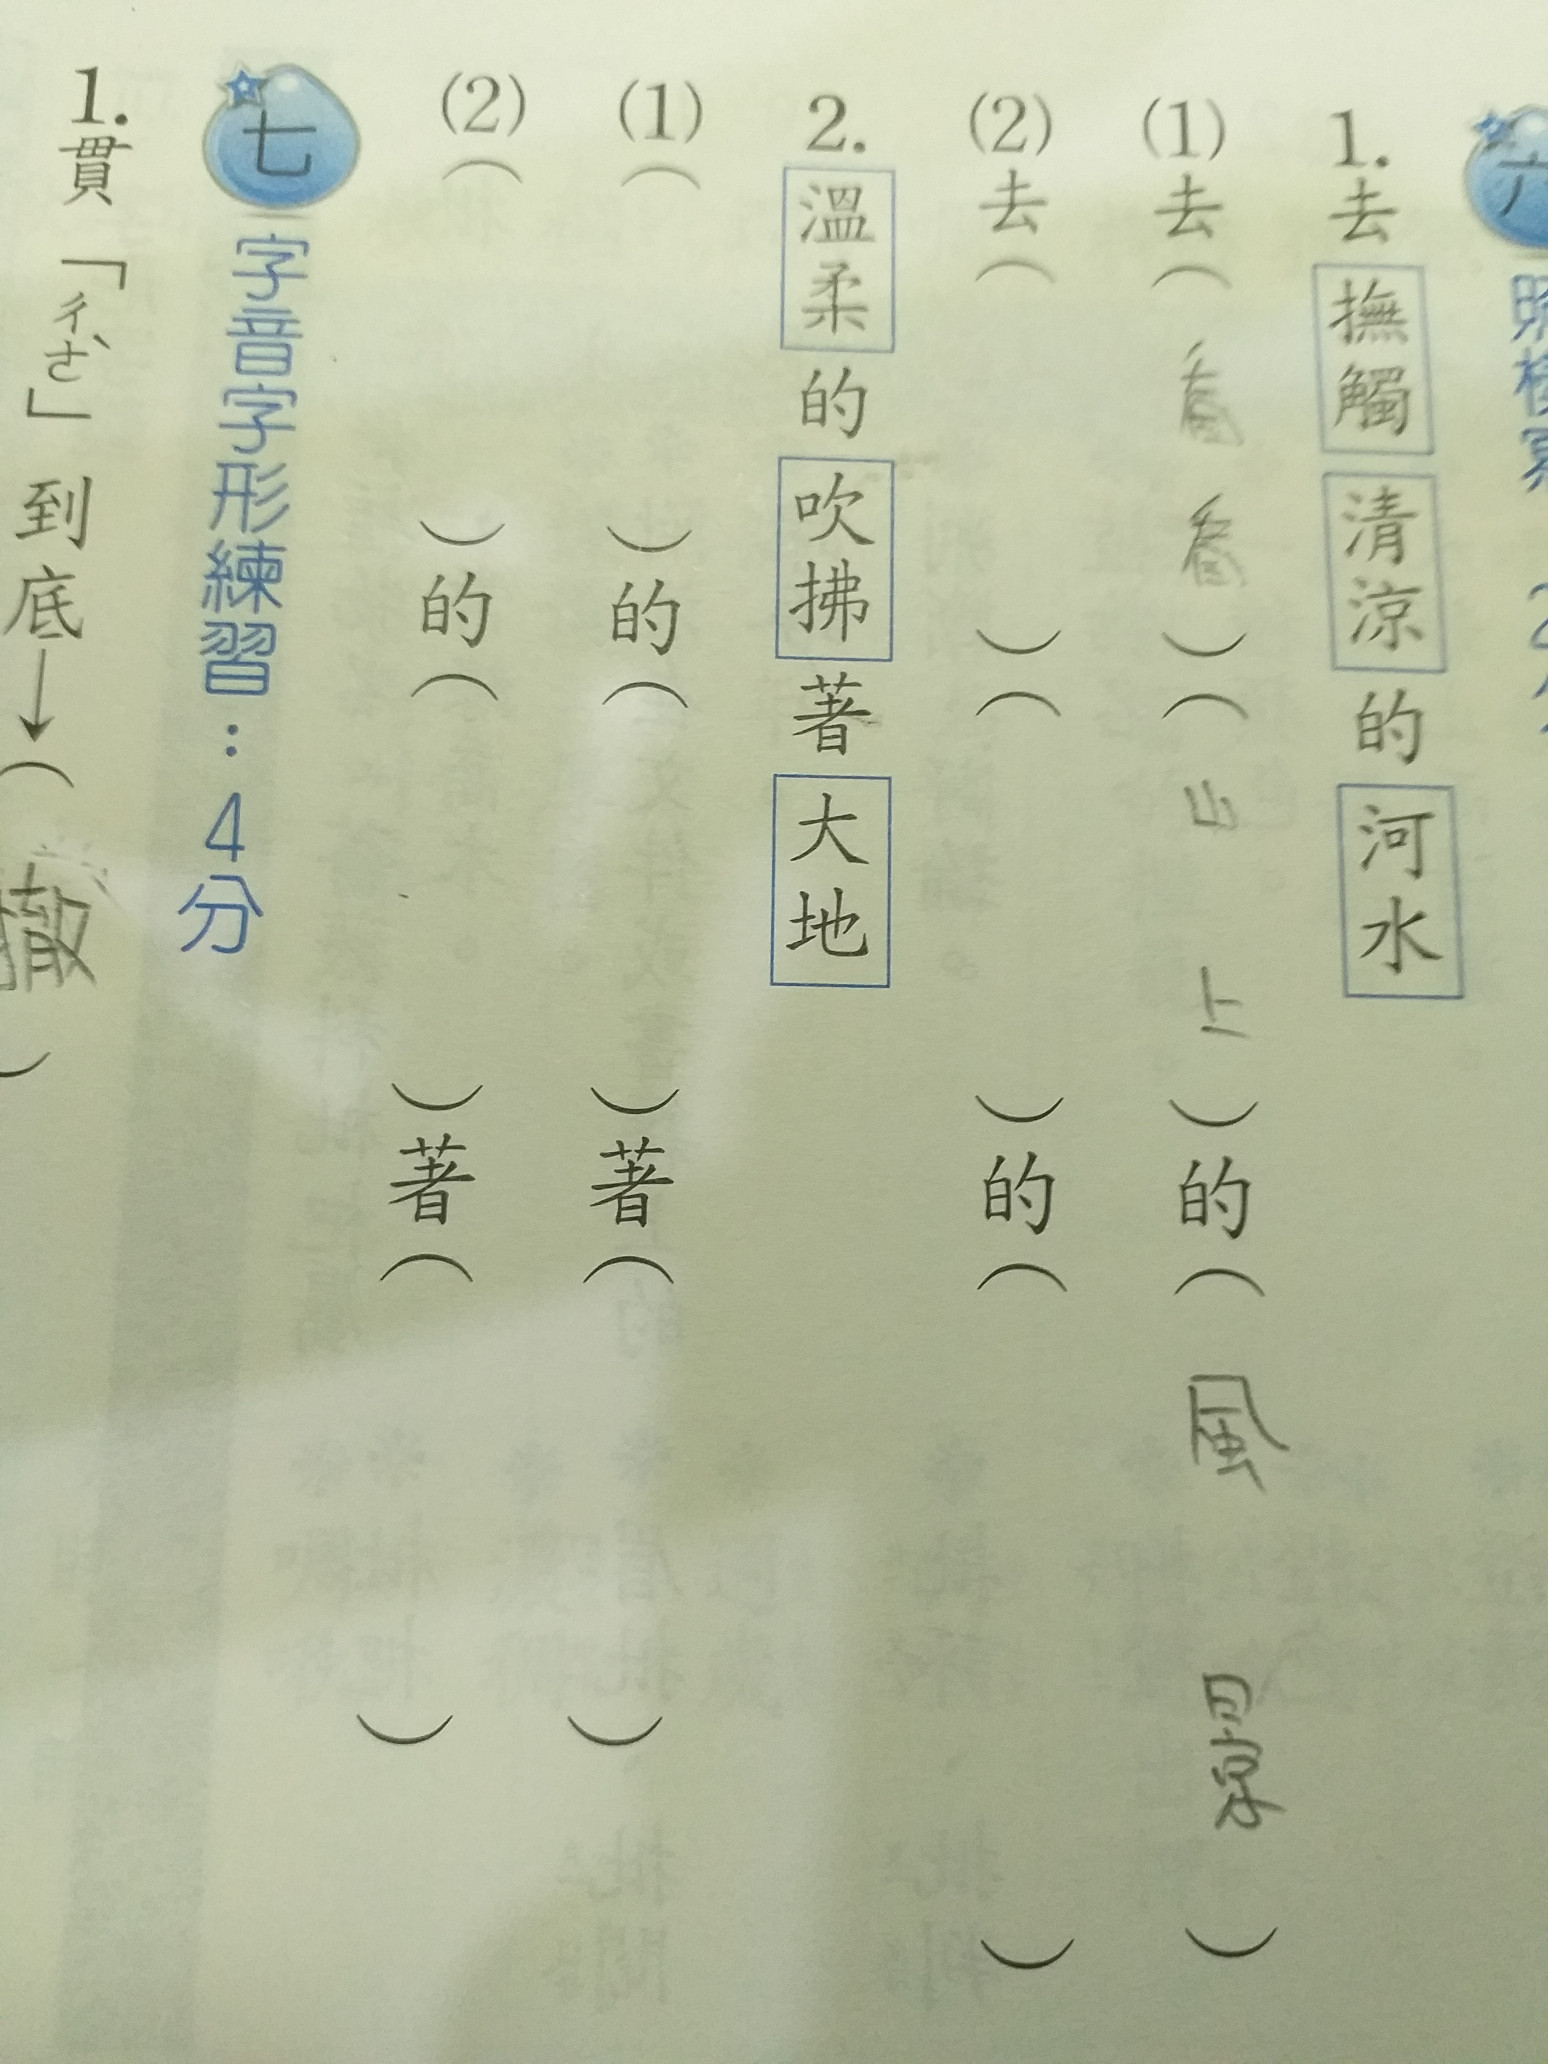 六
1.去撫觸清涼的河水
(1)去(看看)(山上)的(風景)
(2)去()()的()
2.溫柔的吹拂著大地
(1)()的()著()
(2)()的()著()
七 字音字形練習：4分
1.貫「ㄔㄜˋ」到底→(撤)